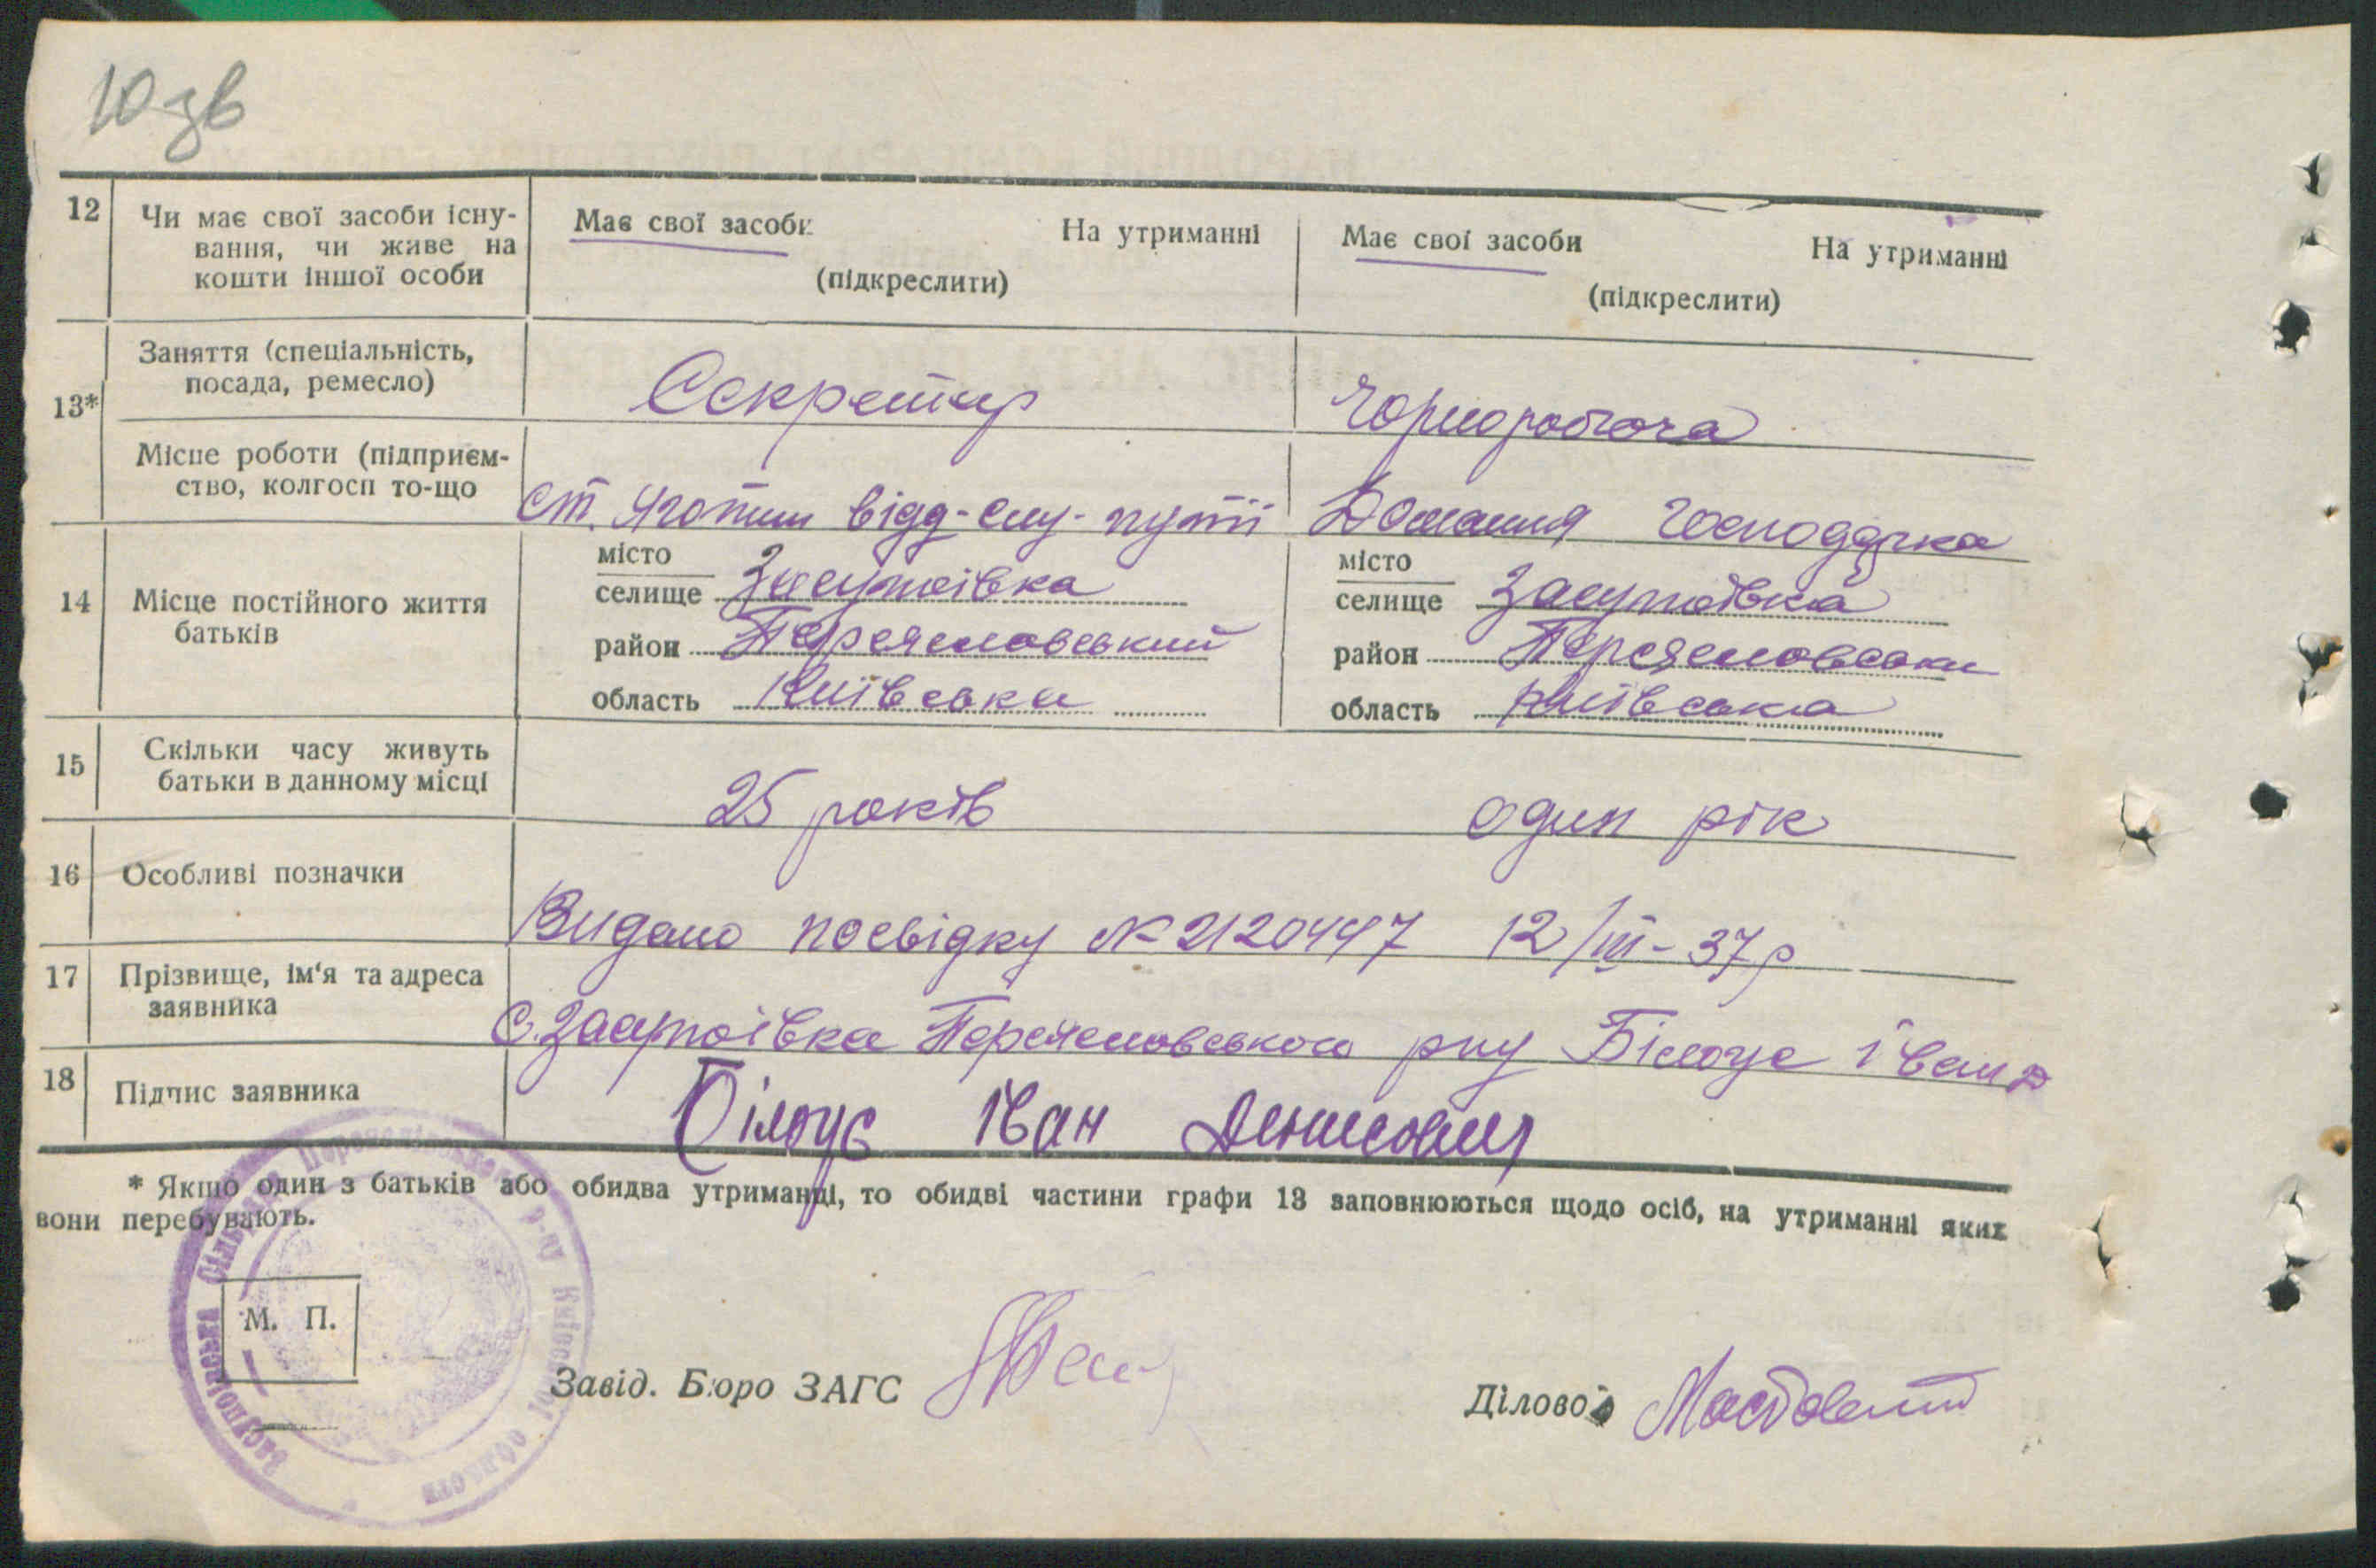 10 зв
12 Чи має свої засоби існу-
вання, чи живе на
кошти іншої особи
Має свої засоби На утриманні
(підкреслити)
Має свої засоби На утриманні
(підкреслити)
13*
Заняття (спеціальність,
посада, ремесло)
Секретар
Чорноробоча
Місце роботи (підприєм-
ство, колгосп то-що
ст. Яготин відд-слу-путті
Домашня господарка
14 Місце постійного життя
батьків
місто
селище Засупоївка
район Переяславський
область Київська
місто
селище Засупоївка
район Переяславськи
область Київська
15 Скільки часу живуть
батьки в данному місці
25 років
один рік
16 Особливі позначки
Видано посвідку № 2120447 12/III-37р
17 Прізвище, ім'я та адреса
заявника
с. Засупоівка Переяславського рну Білоус Іван
18 Підпис заявника
Білоус Іван Денисович
* Якщо один з батьків або обидва утриманці, то обидві частини графи 13 заповнюються щодо осіб, на утриманні яких
вони перебувають.
М. П.
Засупоївська Сільрада р-ну Київської області
Завід. Бюро ЗАГС
Діловод